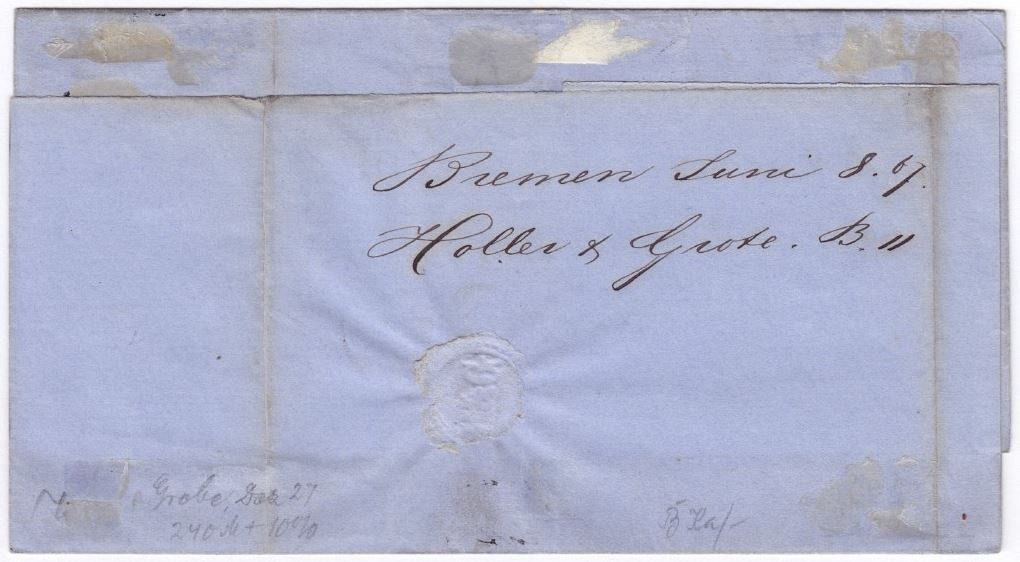 Bremen Juni 8. 67.
Holler & Grote. B. 11
Grobe, Dez 27
240 M + 10%